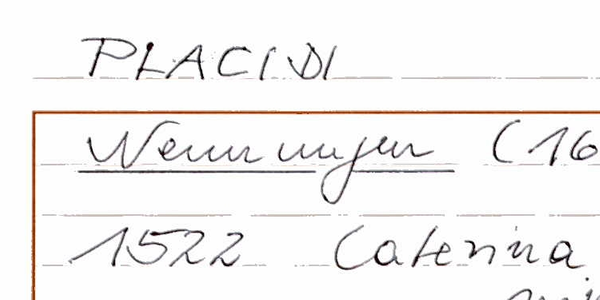 PLACIDI
Nennungen (16
1522 Caterina